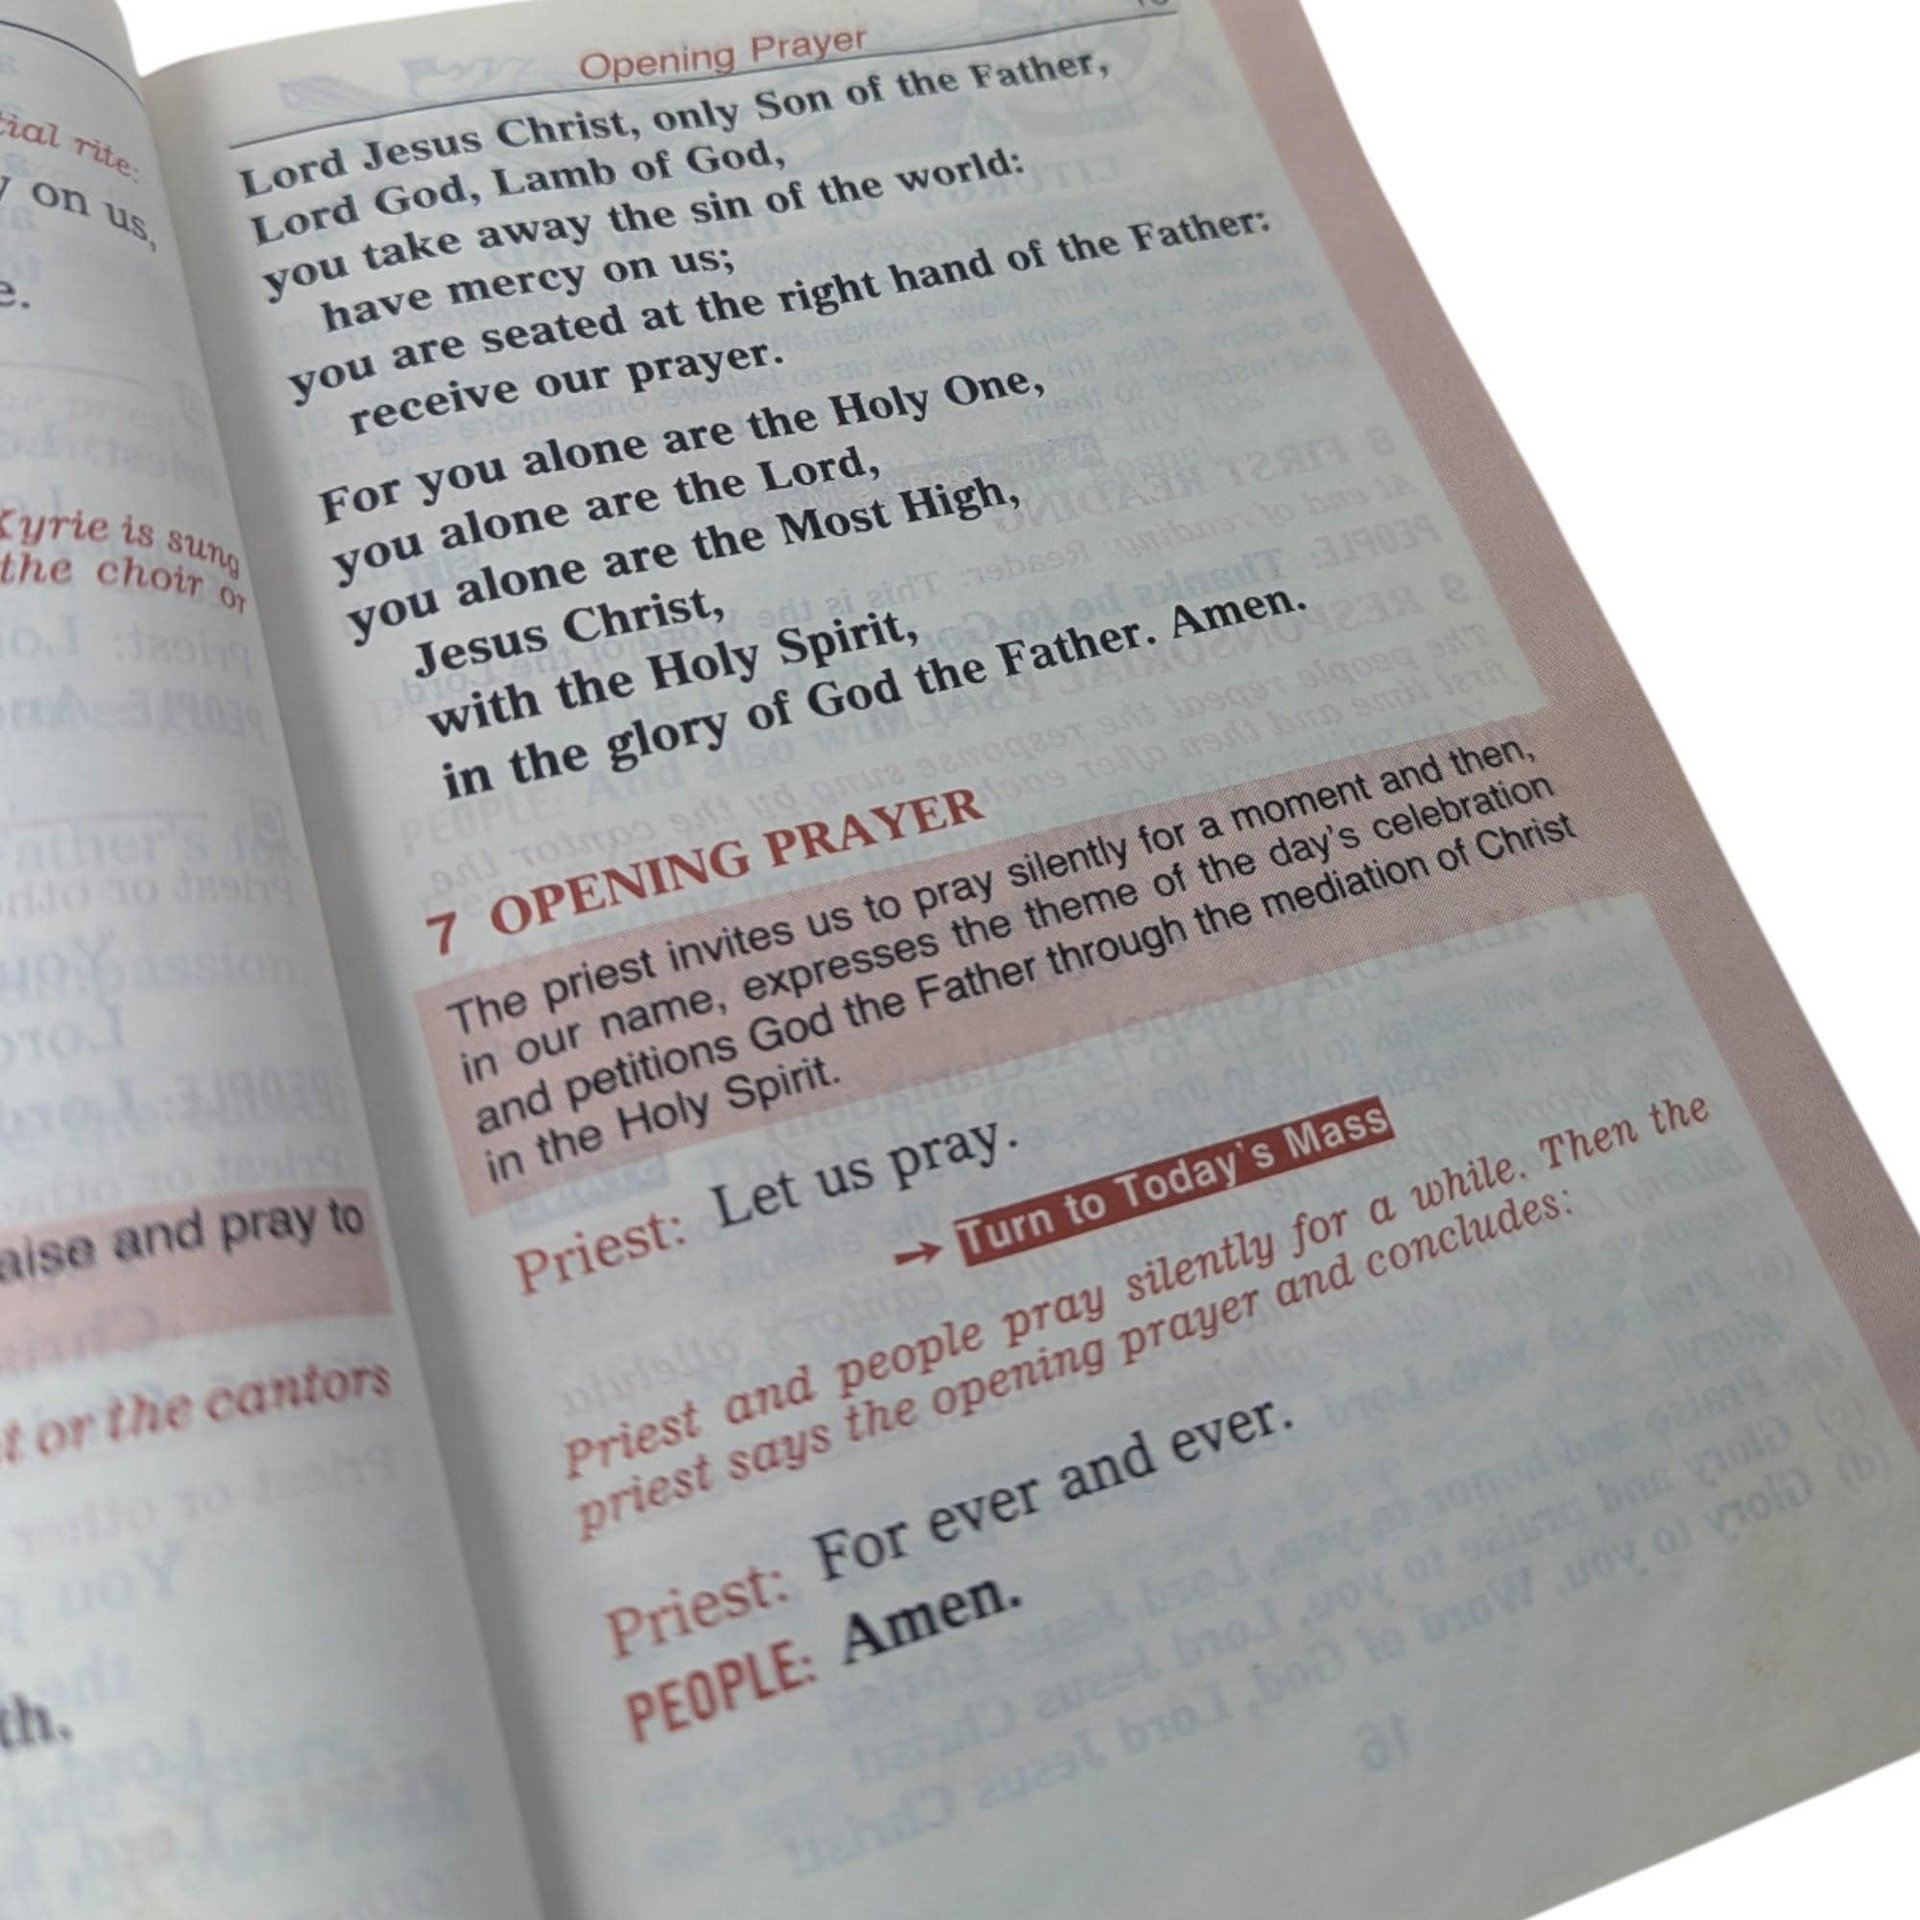 tial rite:
on us,
e.
Kyrie is sung
the choir or
aise and pray to
t or the cantors
th.
Opening Prayer
Lord Jesus Christ, only Son of the Father,
Lord God, Lamb of God,
you take away the sin of the world:
have mercy on us;
you are seated at the right hand of the Father:
receive our prayer.
For you alone are the Holy One,
you alone are the Lord,
you alone are the Most High,
Jesus Christ,
with the Holy Spirit,
in the glory of God the Father. Amen.
7 OPENING PRAYER
The priest invites us to pray silently for a moment and then,
in our name, expresses the theme of the day's celebration
and petitions God the Father through the mediation of Christ
in the Holy Spirit.
Priest: Let us pray.
→ Turn to Today's Mass
Priest and people pray silently for a while. Then the
priest says the opening prayer and concludes:
Priest: For ever and ever.
PEOPLE: Amen.